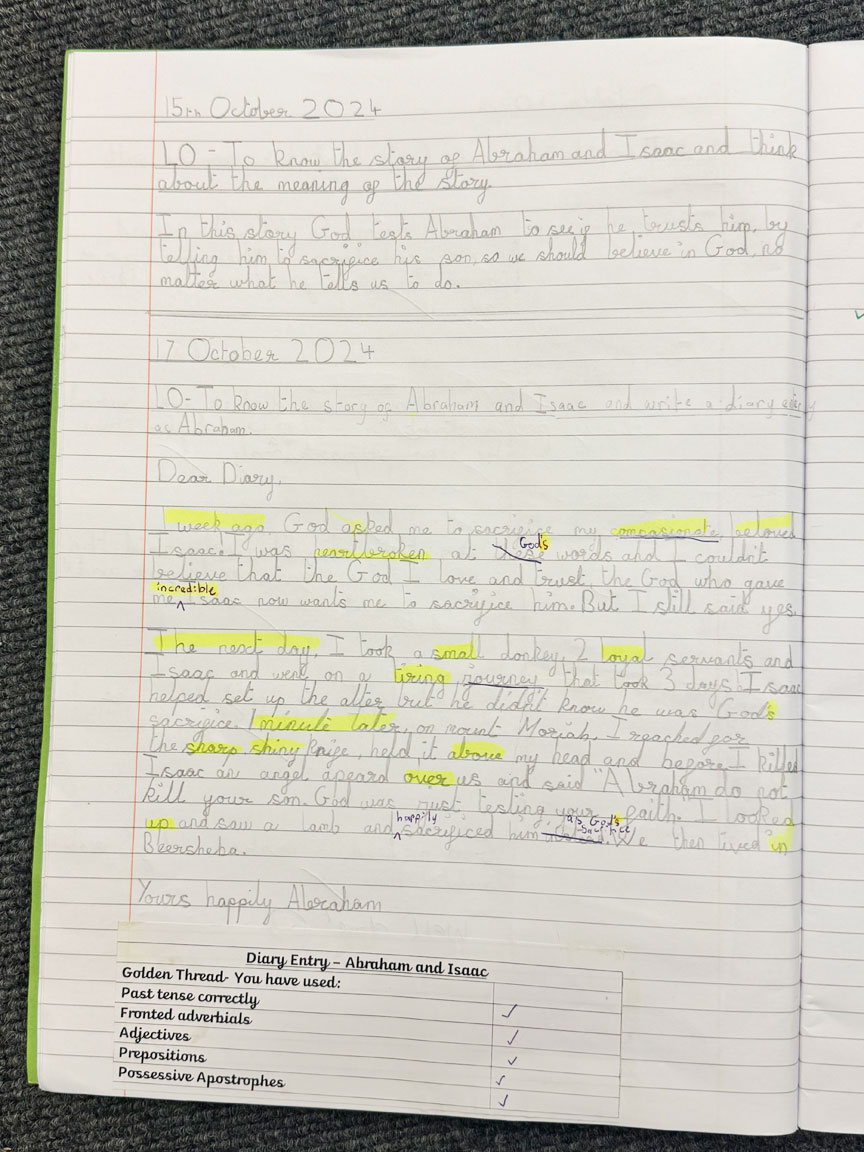 15th October 2024
LO - To know the story of Abraham and Isaac and think
about the meaning of the story.
In this story God tests Abraham to see if he trusts him, by
telling him to sacrifice his son, so we should believe in God, no
matter what he tells us to do.
17 October 2024
LO- To know the story of Abraham and Isaac and write a diary entry
as Abraham.
Dear Diary,
1 week ago, God asked me to sacrifice my compasionate beloved
Isaac. I was heartbroken at these God's words and I couldn't
believe that the God I love and trust, the God who gave
incredible
me Isaac now wants me to sacrifice him. But I still said yes.
The next day, I took a small donkey, 2 loyal servants and
Isaac and went on a tiring journey that took 3 days! Isaac
helped set up the alter but he didn't know he was God's
sacrifice. 1 minute later, on mount Moriah, I reached for
the sharp shiny knife, held it above my head and before I killed
Isaac an angel apeard over us and said "Abraham do not
kill your son. God was just testing your faith. I looked
happily as God's sacrifice
up and saw a lamb and sacrificed him. We then lived in
Beersheba.
Yours happily Abraham
Diary Entry – Abraham and Isaac
Golden Thread- You have used:
Past tense correctly
Fronted adverbials
Adjectives
Prepositions
Possessive Apostrophes